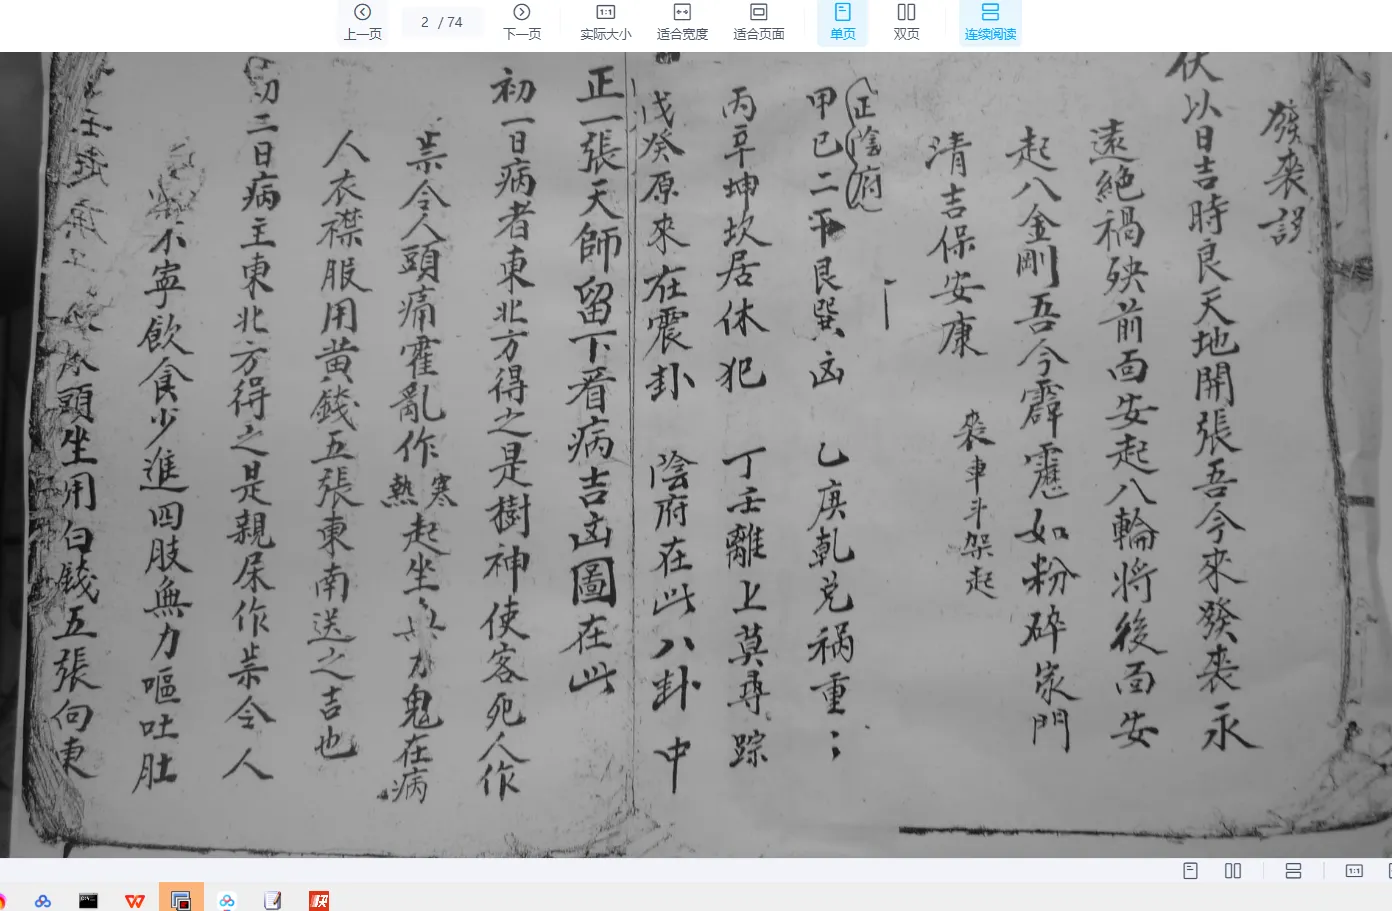 上一页
2 / 74
下一页
实际大小
适合宽度
适合页面
单页
双页
连续阅读
發丧謬
伏以日吉時良天地開張吾今來發丧永
遠絕禍殃前面安起八輪將後面安
起八金剛吾今霹靂如粉碎家門
清吉保安康
丧車斗架起
正陰府
甲己二平艮巽凶 乙庚乾兑禍重
丙辛坤坎居休犯 丁壬離上莫尋踪
戊癸原來在震卦 陰府在此八卦中
正一張天師留下看病吉凶圖在此
初一日病者東北方得之是樹神使客死人作
祟令人頭痛霍亂作寒熱起坐力鬼在病
人衣襟服用黄錢五張東南送之吉也
初二日病主東北方得之是親家作祟令人
不寧飲食少進四肢無力嘔吐肚
頭坐用白錢五張向東
1:1